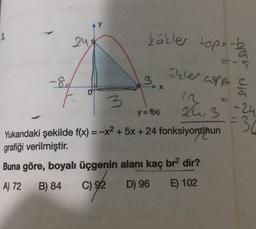 y
24
kökler top = -b/a
= -5
-8
3
kökler çarp c/a
x
O
3
12
= -24
y = f(x)
24.3
2
= 36
Yukarıdaki şekilde f(x) = –x² + 5x + 24 fonksiyonunun
grafiği verilmiştir.
Buna göre, boyalı üçgenin alanı kaç br² dir?
A) 72 B) 84 C) 92 D) 96 E) 102